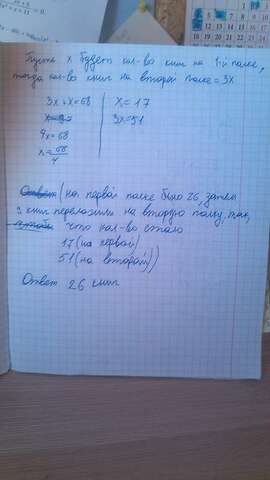 Пусть x будет кол-во книг на 1й полке,
тогда кол-во книг на второй полке = 3x
3x+x=68
4x=68
x=68/4
x=17
3x=51
Ответ (на первой полке было 26, затем
9 книг переложили на вторую полку, так,
чтобы что кол-во стало
17 (на первой)
51 (на второй))
Ответ 26 книг